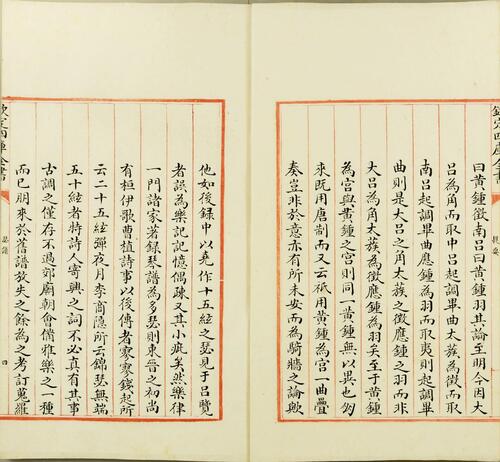 欽定四庫全書
提要
曰黃鍾徵南呂曰黃鍾羽其論至明今因大
呂為角而取中呂起調畢曲太蔟為徵而取
南呂起調畢曲應鍾為羽而取夷則起調畢
曲則是大呂之角太蔟之徵應鍾之羽而非
大呂為角太蔟為徵應鍾為羽矣至于黃鍾
為宮與黃鍾之宮則同一黃鍾無以異也匆
來既用唐制而又云祗用黃鍾為宮一曲疊
奏豈非於意亦有所未安而為騎牆之論歟
他如後録中以堯作十五絃之瑟見于呂覽
者誤為樂記記憶偶疎又其小疵矣然樂律
一門諸家著録琴譜為多瑟則東晉之初尚
有桓伊歌曹植詩事以後傳者寥寥錢起所
云二十五絃彈夜月李商隱所云錦瑟無端
五十絃者特詩人寄興之詞不必真有其事
古調之僅存不過郊廟朝會備雅樂之一種
而已朋來於舊譜放失之餘為之考訂蒐羅
欽定四庫全書
瑟譜
四